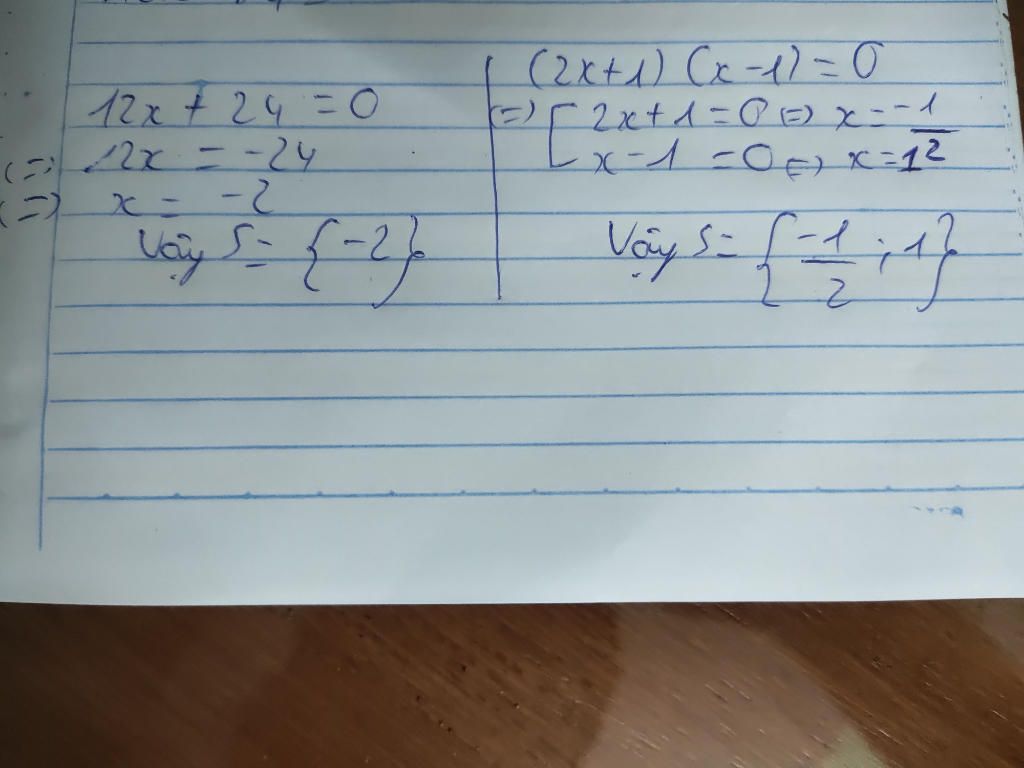 12x + 24 = 0
(=) 12x = -24
(=) x = -2
Vậy S = {-2}
(2x+1) (x-1) = 0
(=) [ 2x+1 = 0 (=) x = -1/2
x-1 = 0 (=) x = 1
Vậy S = {-1/2 ; 1}